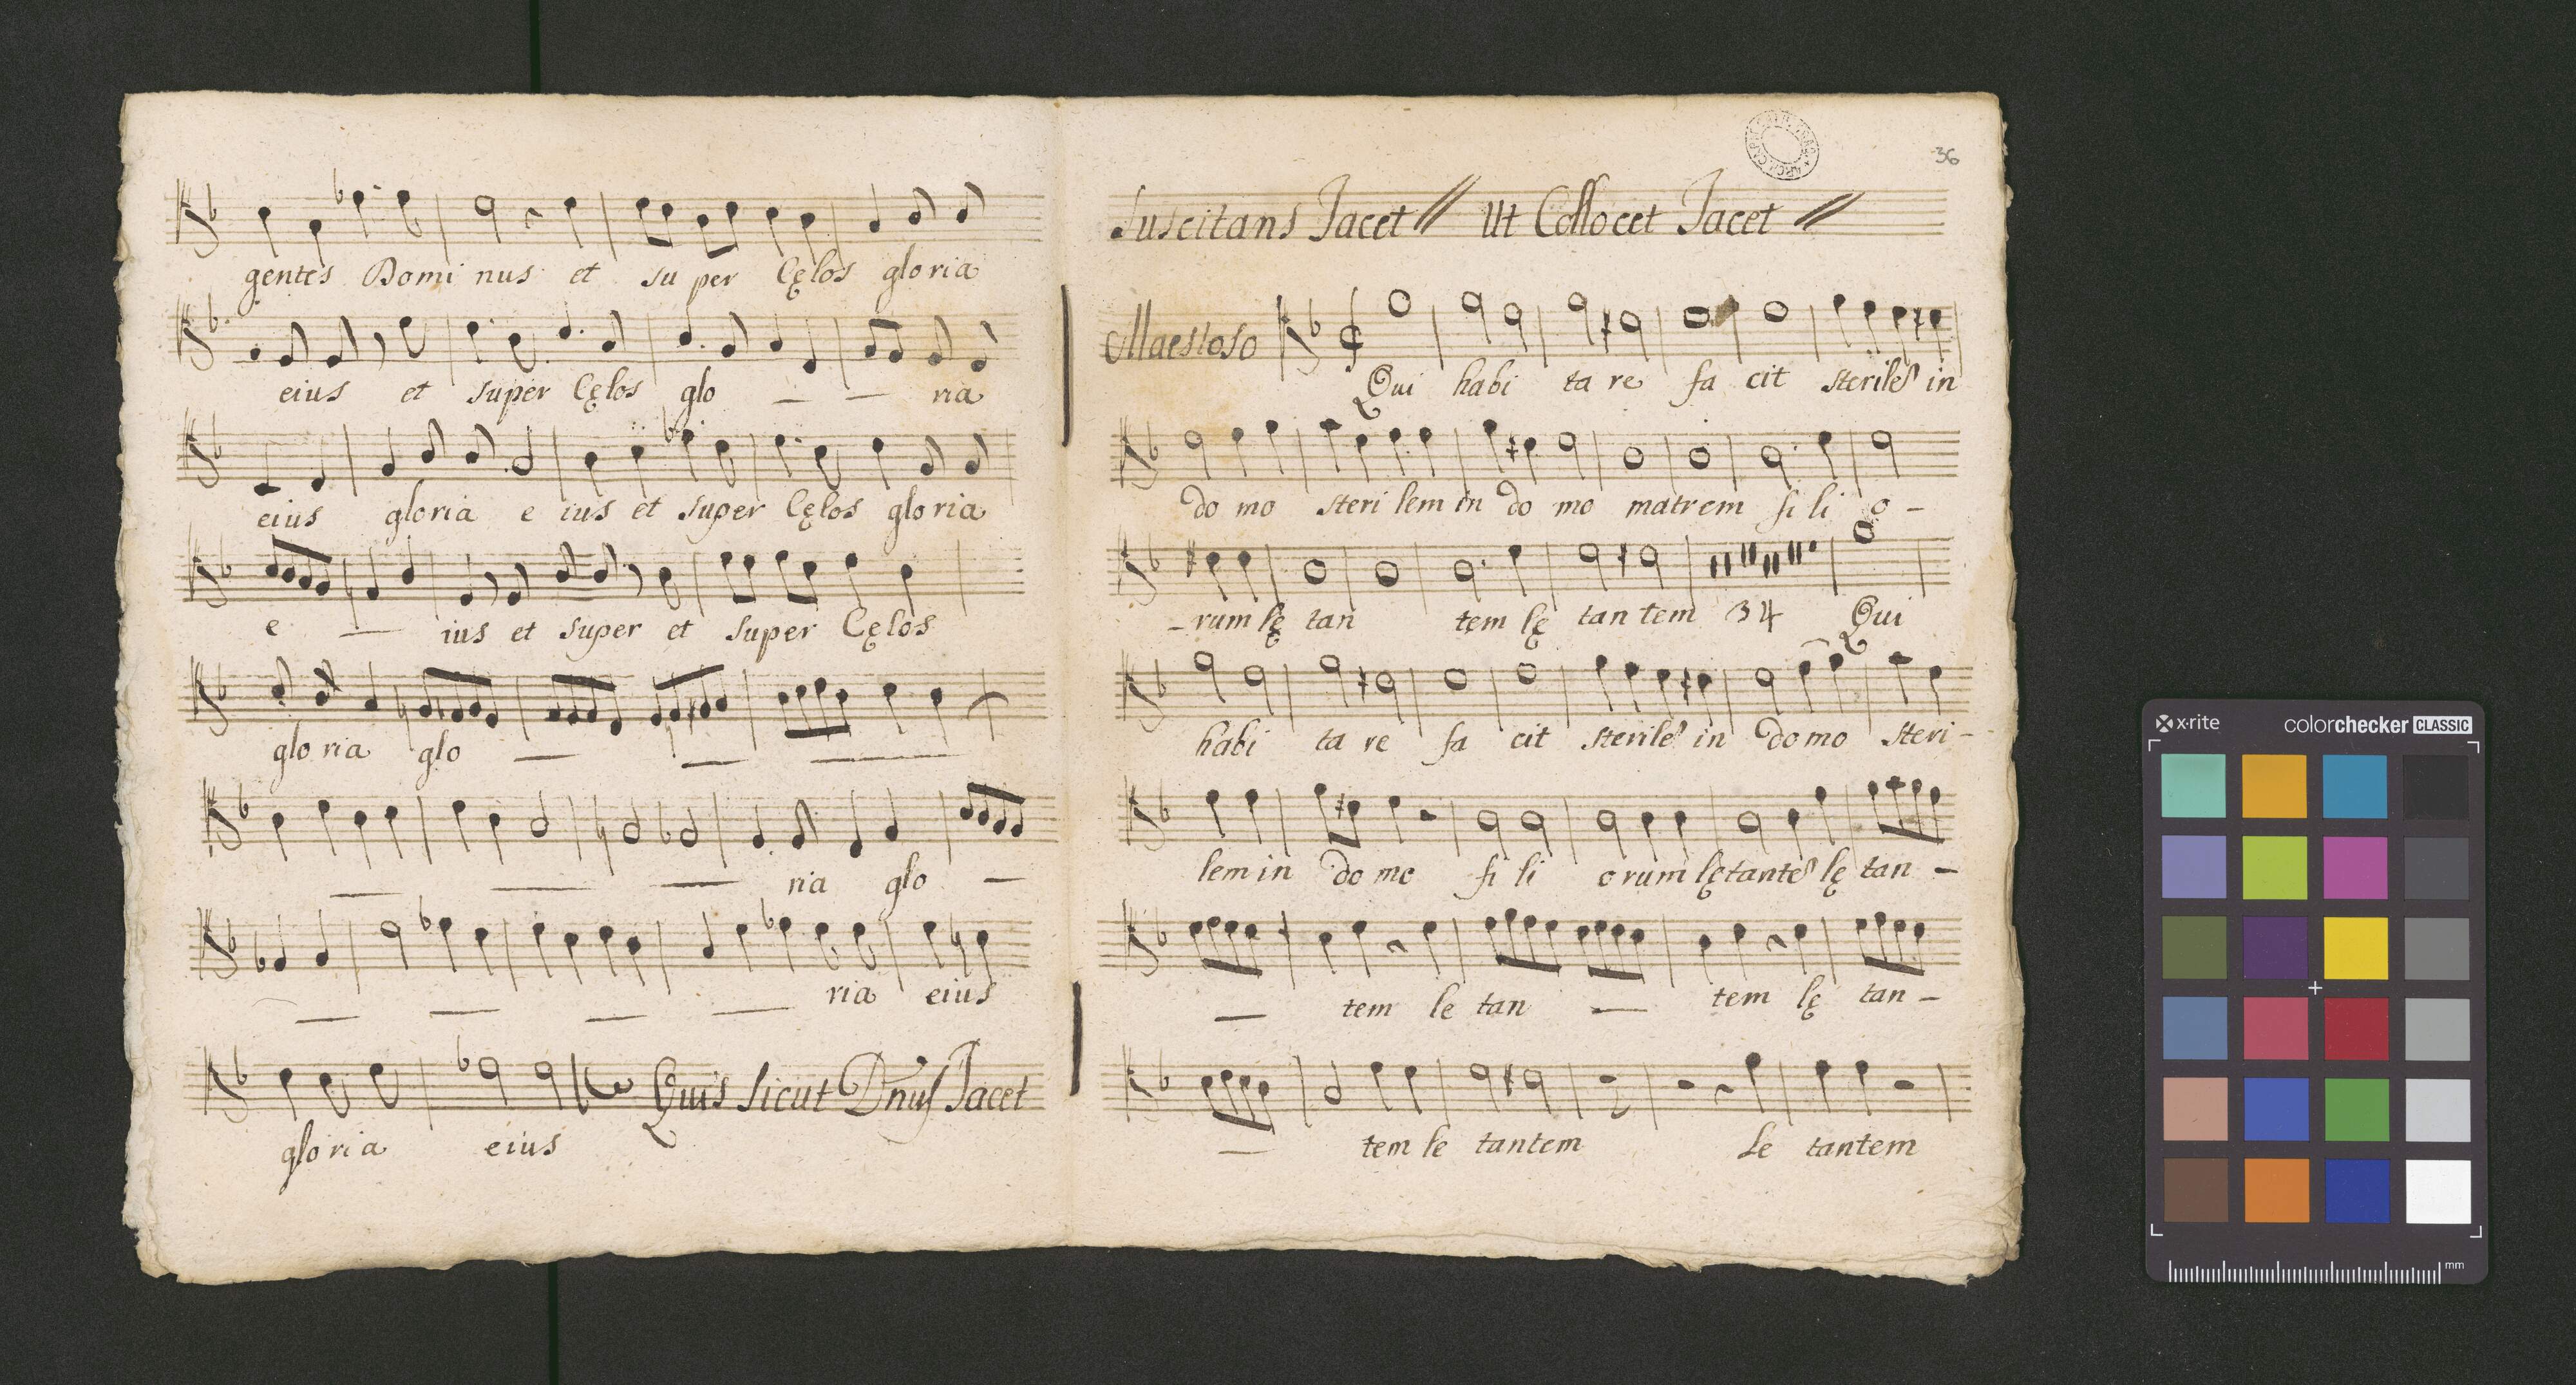 gentes Domi nus et su per Cęlos gloria
eius et super Cęlos glo — — ria
eius gloria e ius et super Cęlos gloria
e — ius et super et super Cęlos
gloria glo — — —
— — — ria glo —
— — — — ria eius
Quis sicut Dnus Jacet
gloria eius
36
Suscitans Jacet // Ut Collocet Jacet //
Maestoso
Qui habi ta re fa cit steriles in
do mo steri lem in do mo matrem fi li o -
- rum lę tan tem lę tan tem 34 Qui
habi ta re fa cit steriles in domo steri -
lem in do mo fi li orum lętantes lę tan -
— tem le tan — tem lę tan -
— tem le tantem Le tantem
x·rite
colorchecker CLASSIC
mm